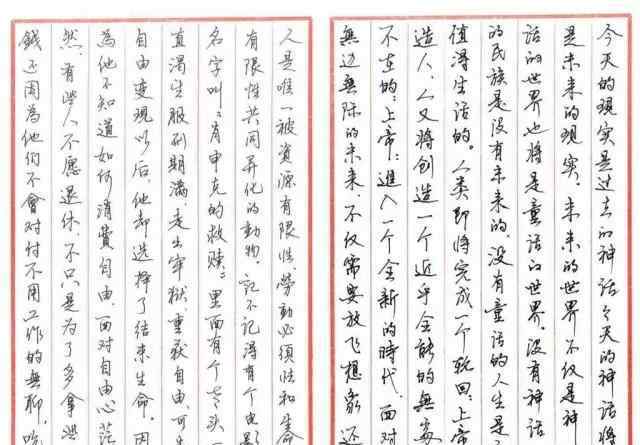 今天的现实是过去的神话今天的神话将
是未来的现实。未来的世界不仅是神
话的世界也将是童话的世界。没有神话
的民族是没有未来的，没有童话的人生是不
值得生活的。人类即将完成一个轮回：上帝
造人，人又将创造一个近乎全能的無
不在的：上帝：進入一个全新的時代，面对
無边無际的未来，不仅需要放飞想象还
人是唯一被资源有限性，劳動必须性和生命
有限性共同异化的動物。记不记得有个电影
名字叫：肖申克的救赎：里面有个老头一
直渴望服刑期满，走出牢狱，重获自由，可
自由变现以后，他却选择了结束生命。因
為他不知道如何消費自由，面对自由心茫
然，有些人不愿退休，不只是为了多拿些
錢还因為他们不會对付不用工作的無聊，